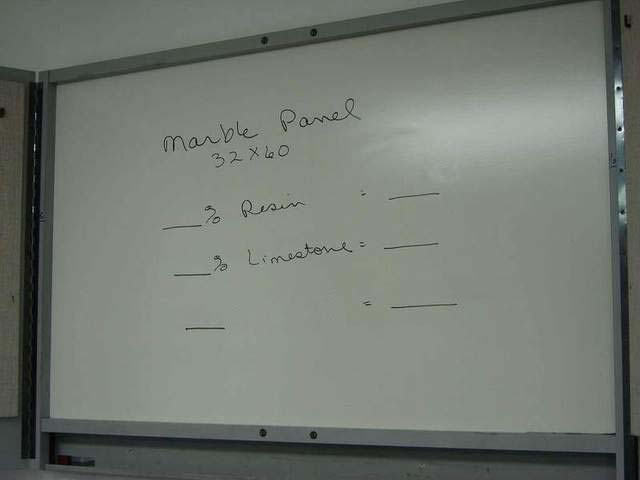 Marble Panel
32 x 60
___% Resin = ___
___% Limestone = ___
___ = ___